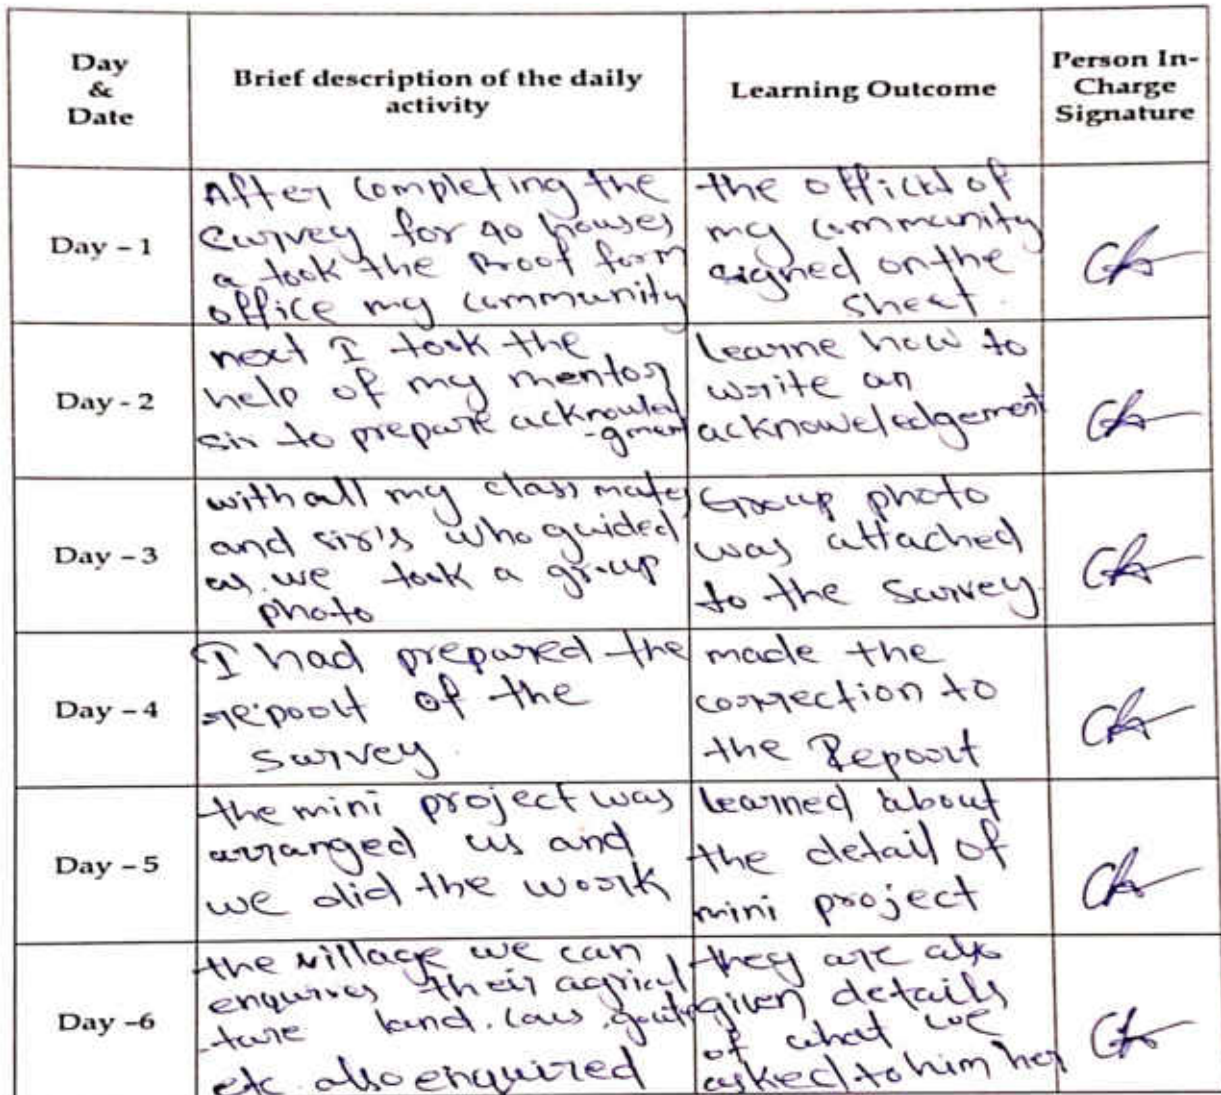 Day
&
Date
Brief description of the daily
activity
Learning Outcome
Person In-
Charge
Signature
Day – 1
After completing the
Survey for 40 houses
a took the Proof form
office my community
the officis of
my community
signed on the
sheet.
Day - 2
next I took the
help of my mentor
sir to prepare acknowled
-gment
learne how to
write an
acknoweledgement
Day – 3
with all my class mates
and sir's who guided
as we took a group
photo
Group photo
was attached
to the Survey.
Day – 4
I had prepared the
repoort of the
Survey.
made the
correction to
the Repoort
Day – 5
the mini project was
arranged us and
we did the work
learned about
the detail of
mini project
Day –6
the village we can
enquires their agricul
-ture land. cow. goats
etc. also enquired
they are also
given details
of what we
asked to him her